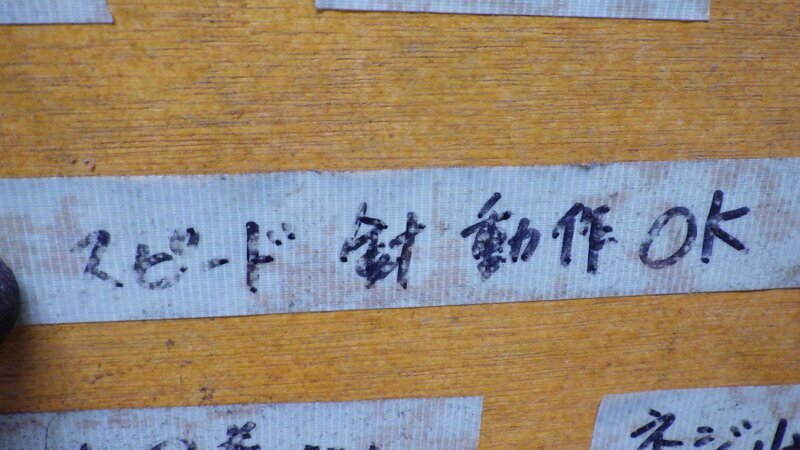 スピード 針 動作 OK
ネジ